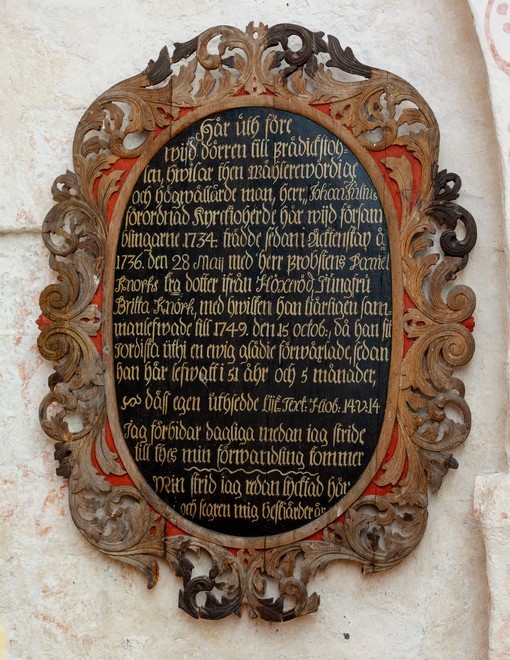 Här úth före
wijd dörren till Prädickstoh-
len, hwilar then Wählerewördige
och högwällärde man, herr, Johan
förordnad Kyrckioherde här wijd försam
blingarne 1734. trädde sedan i Ächtenskap å
1736. den 28 Maij med herr Probstens Daniel
Knorhs dotter ifrån Jungfrú
Britta Knorh, med hwilken han kiärligen sam-
manlefwade till 1749. den 15 octob:, då han
jordiska úthi en ewig glädie förwäxlade, sedan
han här lefwatt i 51 åhr och 5 månader,
däss egen úthsedde Text: Hiob: 14.V.14
Jag förbidar dagliga medan iag stride
till thes min förwandling kommer
Min strid iag redan lycktad här
och segren mig beskiärder är